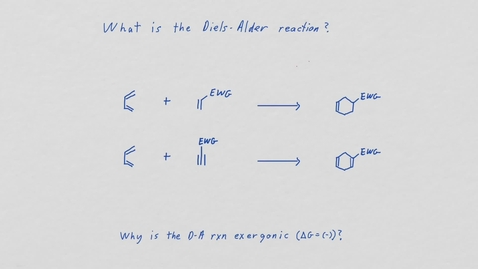 What is the Diels-Alder reaction?
+ EWG EWG
+ EWG EWG
Why is the D-A rxn exergonic (ΔG=(-))?